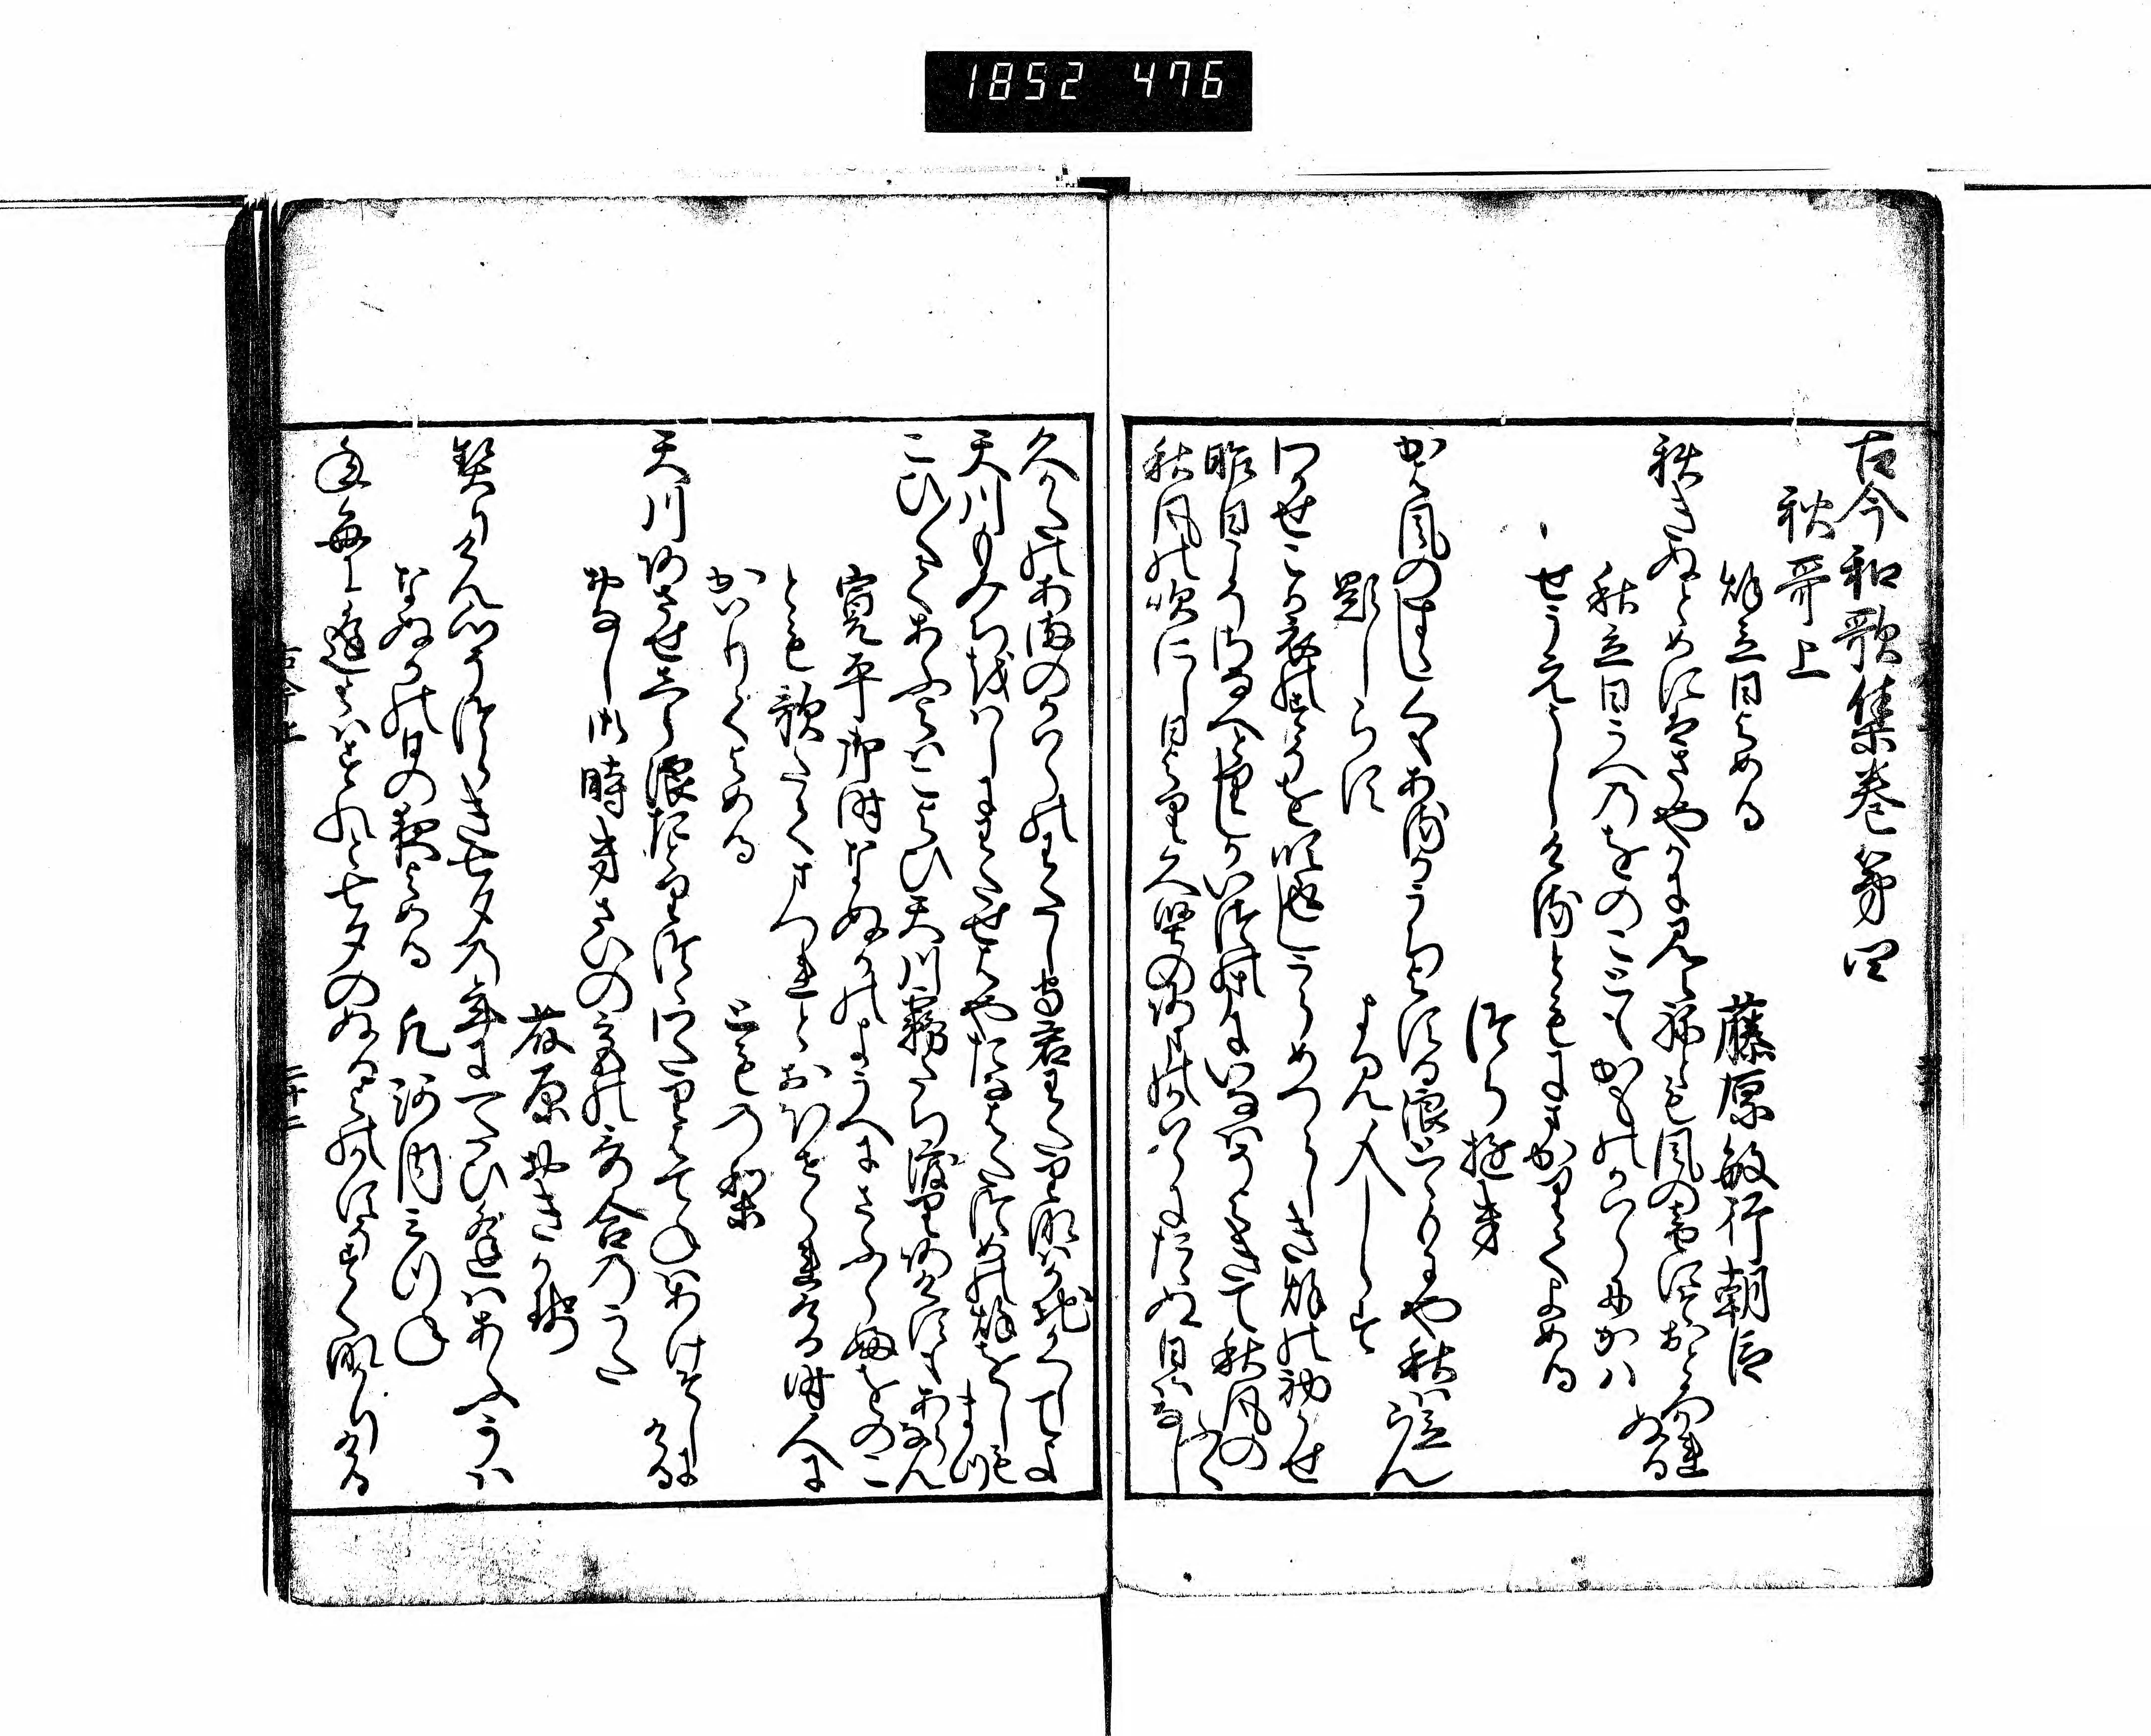 1852 476
古今和歌集巻第四
秋哥上
秋立日よめる 藤原敏行朝臣
秋きぬとめにはさやかに見えねとも風の音にそおとろかれぬる
秋立日うへのをのこともかものかはらにかは
せうえうしけるともにまかりてよめる
つらゆき
かは風のすゝしくもあるかうちよする浪とゝもにや秋は立らん
題しらす よみ人しらす
わかせこか衣のすそを吹返しうらめつらしき秋の初かせ
昨日こそさなへとりしかいつのまにいなはそよきて秋風のふく
秋風の吹にし日より久堅の天のかはらにたゝぬ日はなし
久かたのあまのかはらのわたしもり君わたりなはかちかくしてよ
天川もみちをはしにわたせはや七夕つめの秋をしもまつ
こひ〳〵てあふよはこよひ天川霧たち渡りあけすもあらなん
寛平御時なぬかのようへにさふらふをのこ
とも歌たてまつれとおほせられける時人に
かはりてよめる とものり
天川あさせしら浪たとりつゝわたりはてねはあけそしにける
おなし御時きさいの宮の哥合のうた
藤原おきかせ
契りけん心そつらき七夕の年に一たひ逢はあふかは
なぬかの日の夜よめる 凡河内みつね
年毎に逢とはすれと七夕のぬるよのかすそすくなかりける